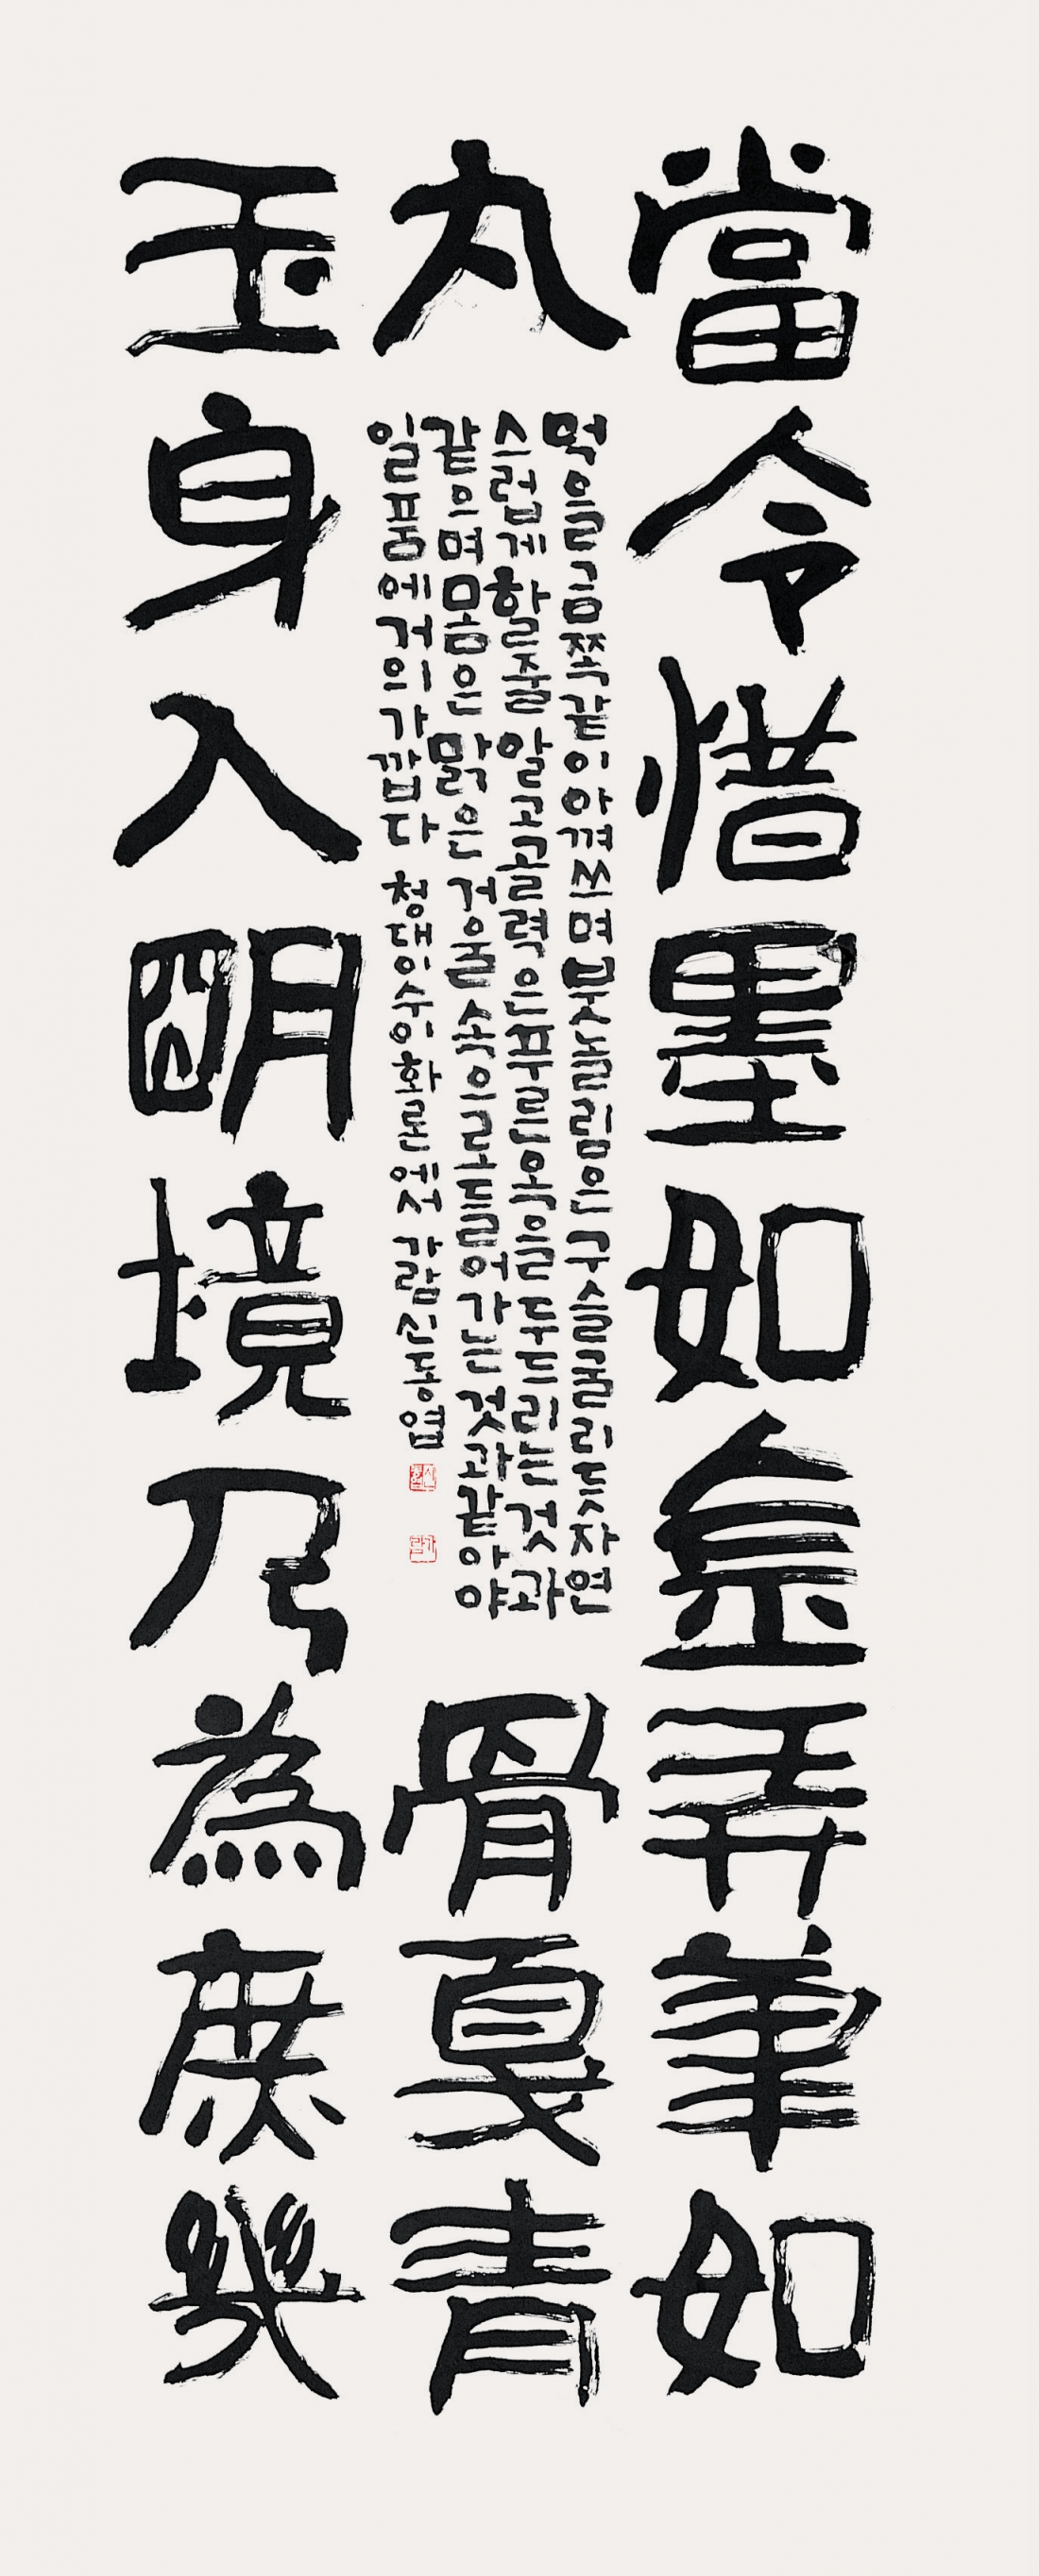 當令惜墨如金弄筆如
丸骨戛青
玉身入明境乃為庶幾
먹을금쪽같이아껴쓰며붓놀림은구슬굴리듯자연
스럽게할줄알고골력은푸른옥을두드리는것과
같으며몸은맑은거울속으로들어가는것과같아야
일품에거의가깝다 청대이수이화론에서 가람신동엽